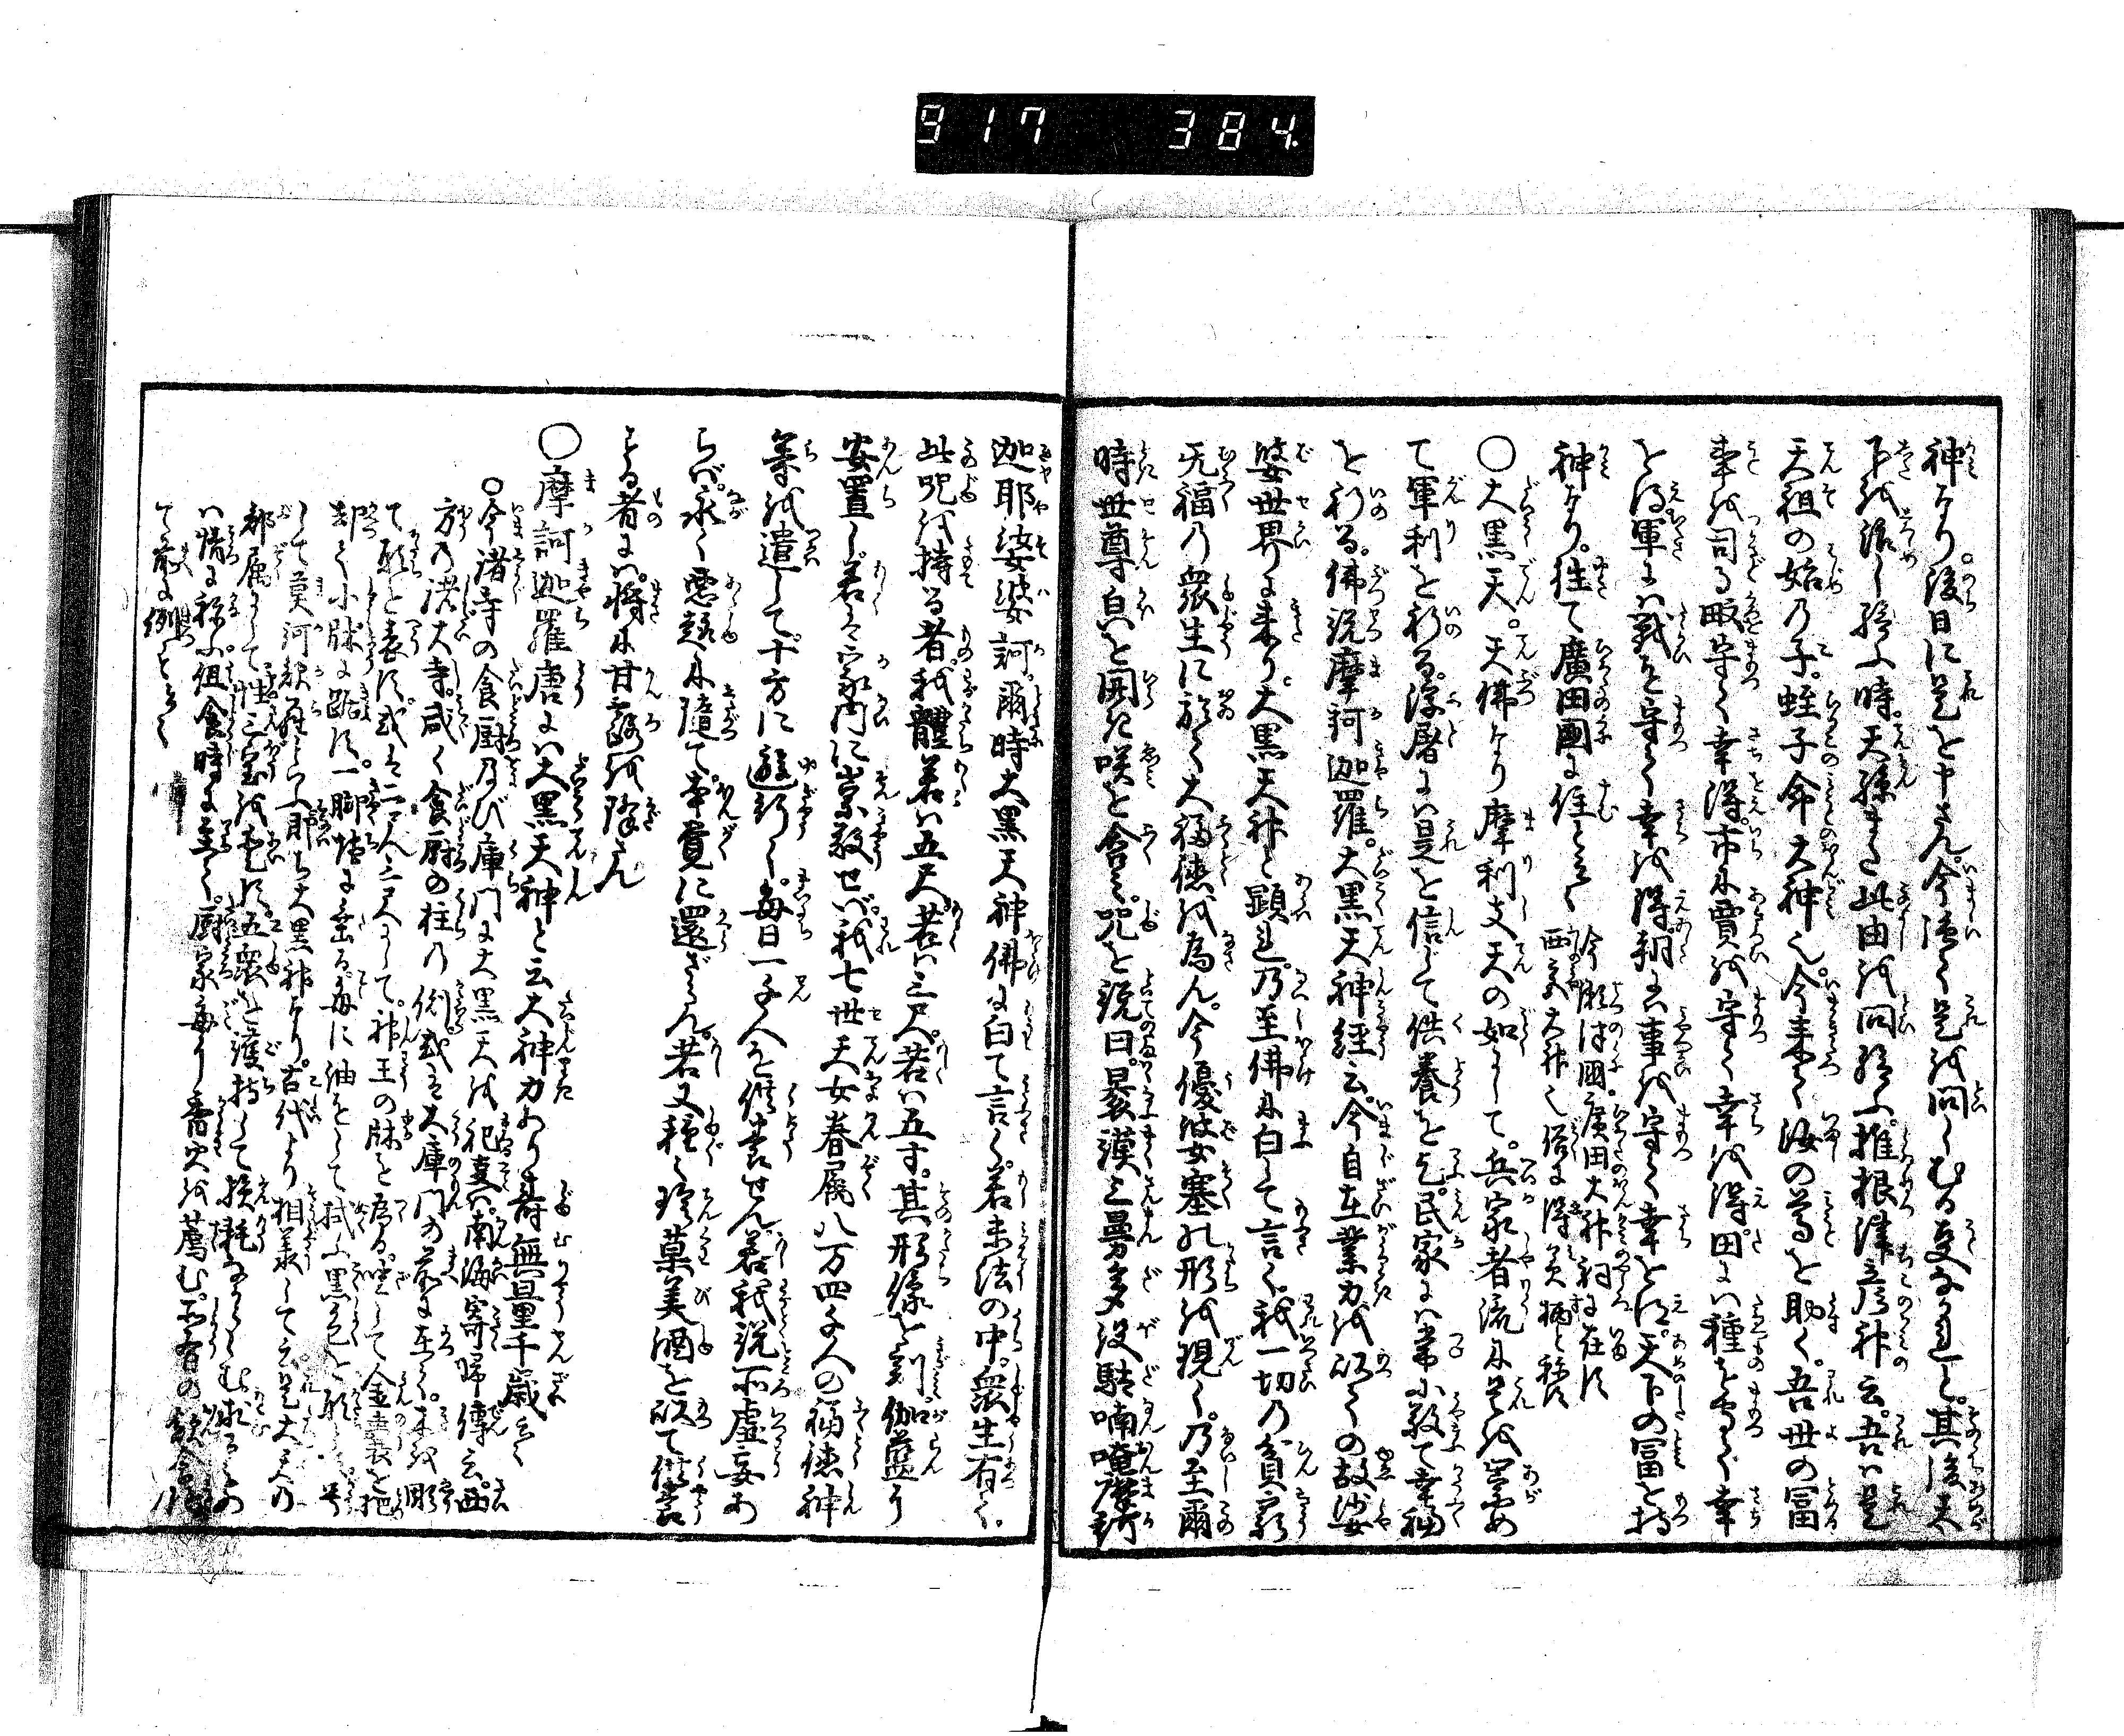 917 384.
神なり。後日に是を申さん。今強く是を問しむる莫なかれと。其後天
下を治しめ給ふ時。天孫また此由を問給ふ。推根津彦神云。吾は是
天祖の始の子。蛭子命大神也。今来て汝の尊を助く。吾世の冨
事を司る。畋を守て幸を得。市に賣を守て幸を得。田に種を守て幸
を得。軍に戦を守て幸を得。朝に事を守て幸を得。天下の冨を持
神なり。往て廣田國に住と云々
今彫は國。廣田大神祠に在す
西宮大神也。俗に得美酒と称す
〇大黒天。天佛なり摩利支天の如にして。兵家者流に是を
て軍利を祈る。浮屠には是を信じて供養を乞。民家には常に敬て幸福
を祈る。佛説摩訶迦羅。大黒天神経云。今自在業力を以ての故娑
婆世界に来り。大黒天神と顕れ。乃至佛に白して言く。我一切の貧窮
无福の衆生に於て大福徳を為ん。今優婆塞の形を現じ。乃至爾
時世尊白を開き咲を含て。咒を説曰。曩謨三曼多没駄喃唵摩訶
迦耶娑婆訶。爾時大黒天神佛に白て言く。若末法の中。衆生有て。
此咒を持る者。我體若は五尺。若は三尺。若は五寸。其形像を刻伽藍に
安置し。若は家内に崇敬せば。我七世天女眷属八万四千人の福徳神
等を遣して。十方に遊行し。毎日一千人を供養せん。若我説所虚妄あ
らば。永く悪趣に墮て。本覚に還ざらん。若又種々珍菓美酒を以て供養
する者には。将に甘露を降さん
〇摩訶迦羅唐には大黒天神と云大神力あり壽無量千歳と云々
〇今諸寺の食厨及び庫門に大黒天を祀支は。南海寄帰傳云。西
方の諸大寺。咸く食厨の柱の側。或は大庫門の前に在て。木を彫
て形を表す。或は二尺三尺にして。神王の状を為る。坐して金嚢を把
却て小牀に踞す。一脚地に垂る。毎に油をもて拭ふ黒色を形とし。号
して莫訶歌羅と曰。即ち大黒神なり。古代より相承して云是大天の
部属にして性三宝を愛す。五衆を護持して損耗なからしむ求るもの
は情に称ふ但食時に至て。厨家毎り香火を薦む。所有の飲食
て前に例と云々